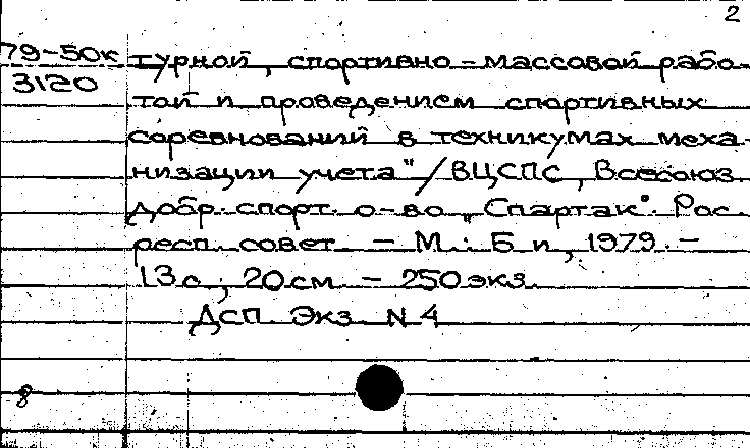 2
79-50к турной, спортивно-массовой рабо-
3120
той и проведением спортивных
соревнований в техникумах меха-
низации учета"/ВЦСПС, Всесоюз.
добр. спорт. о-во „Спартак". Рос.
респ. совет. - М.: Б и, 1979. -
13 с.; 20 см. - 250 экз.
ДСП. Экз. N 4
8